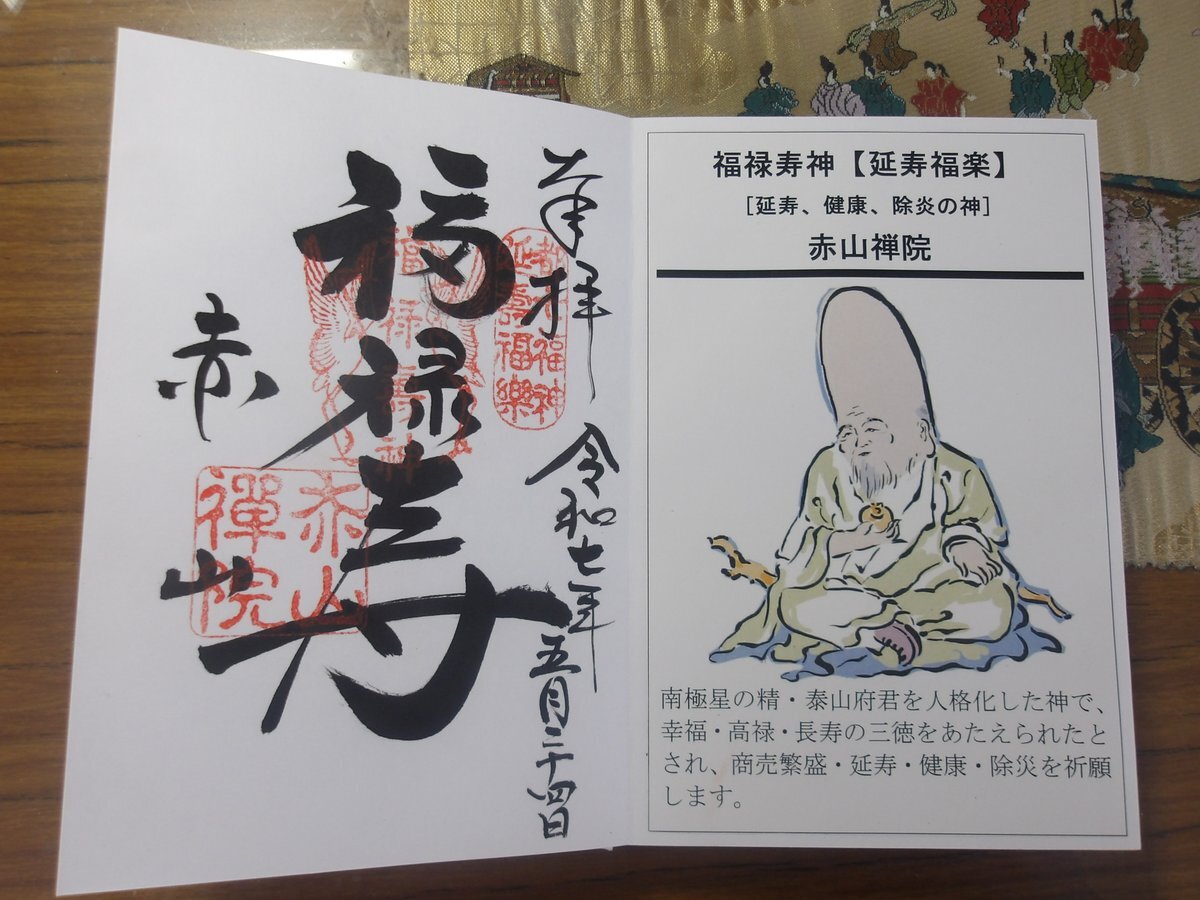 奉拝
令和七年五月二十四日
都七福神
延壽福樂
福禄寿
福禄寿神
赤山
赤山
禪院
福禄寿神【延寿福楽】
[延寿、健康、除炎の神]
赤山禅院
南極星の精・泰山府君を人格化した神で、
幸福・高禄・長寿の三徳をあたえられたと
され、商売繁盛・延寿・健康・除災を祈願
します。